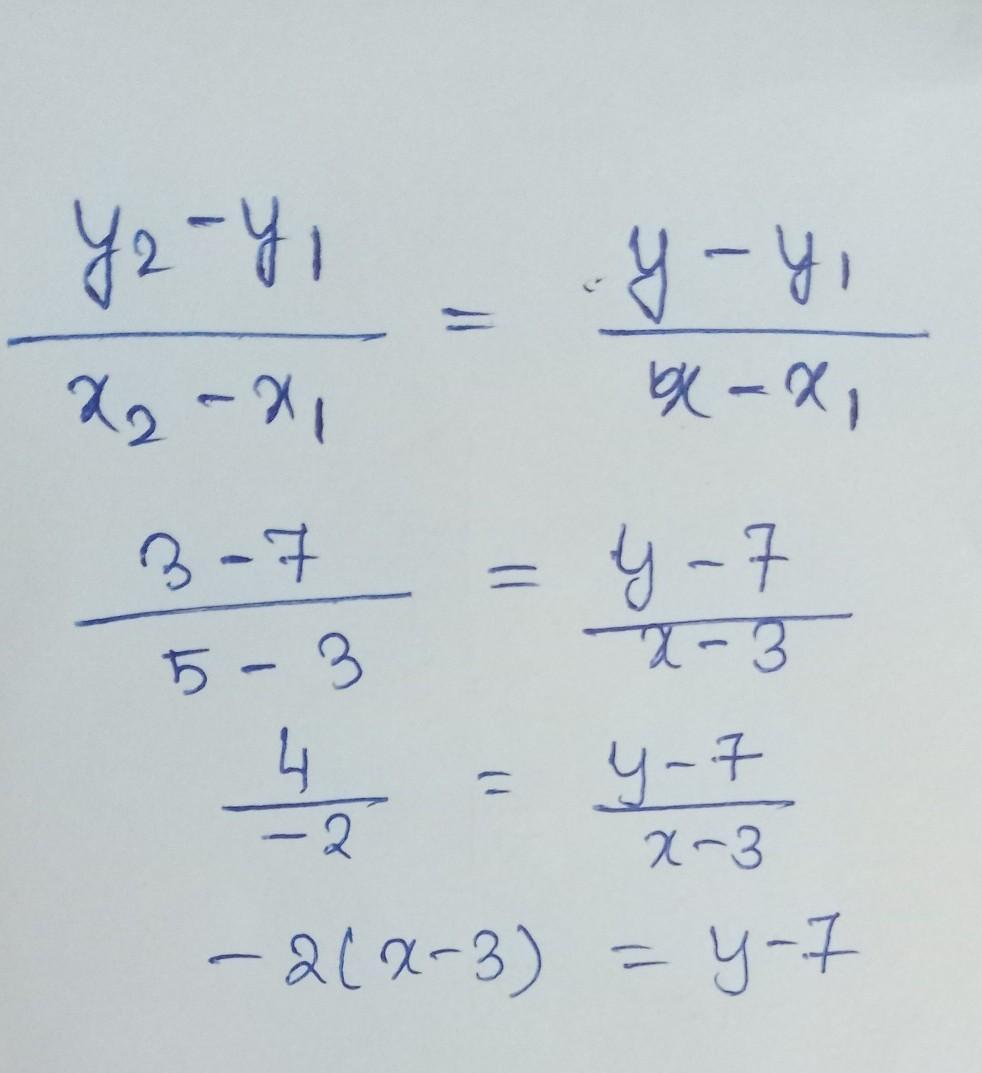 y₂ - y₁ / x₂ - x₁ = y - y₁ / x - x₁
3 - 7 / 5 - 3 = y - 7 / x - 3
4 / -2 = y - 7 / x - 3
-2(x-3) = y-7